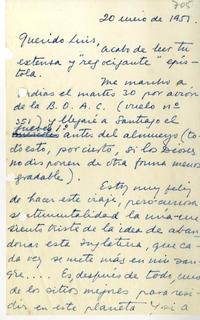 705
20 enero de 1951.
Querido Luis,
acabo de leer tu
extensa y "regocijante" epís-
tola.
Me marcho a
días el martes 30 por avión
de la B.O.A.C. (vuelo nº
351) y llegaré a Santiago el
jueves 1º
antes del almuerzo (to-
do esto, por cierto, si los dioses
no disponen de otra forma menos
agradable).
Estoy muy feliz
de hacer este viaje, pero
sentimentalidad la mía - me
siento triste de la idea de aban-
donar esta Inglaterra, que ca-
da vez se mete más en mi san-
gre.... Es después de todo, uno
de los sitios mejores para resi-
dir en este planeta. Y si a